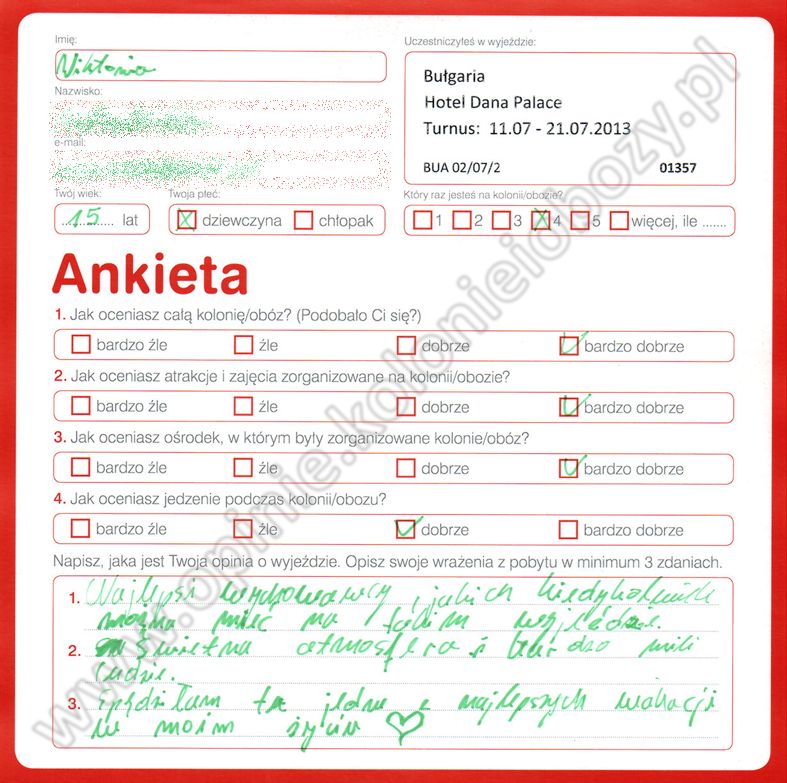 Imię:
Wiktoria
Nazwisko:
e-mail:
Twój wiek:
15 lat
Twoja płeć:
dziewczyna chłopak
Uczestniczyłeś w wyjeździe:
Bułgaria
Hotel Dana Palace
Turnus: 11.07 - 21.07.2013
BUA 02/07/2 01357
Który raz jesteś na kolonii/obozie?
1 2 3 4 5 więcej, ile .......
Ankieta
1. Jak oceniasz całą kolonię/obóz? (Podobało Ci się?)
bardzo źle źle dobrze bardzo dobrze
2. Jak oceniasz atrakcje i zajęcia zorganizowane na kolonii/obozie?
bardzo źle źle dobrze bardzo dobrze
3. Jak oceniasz ośrodek, w którym były zorganizowane kolonie/obóz?
bardzo źle źle dobrze bardzo dobrze
4. Jak oceniasz jedzenie podczas kolonii/obozu?
bardzo źle źle dobrze bardzo dobrze
Napisz, jaka jest Twoja opinia o wyjeździe. Opisz swoje wrażenia z pobytu w minimum 3 zdaniach.
1. Najlepsi wychowawcy, jakich kiedykolwiek
można mieć na takim wyjeździe.
2. Świetna atmosfera i bardzo mili
ludzie.
3. Spędziłam tu jedne z najlepszych wakacji
w moim życiu
www.opinie.kolonieiobozy.pl